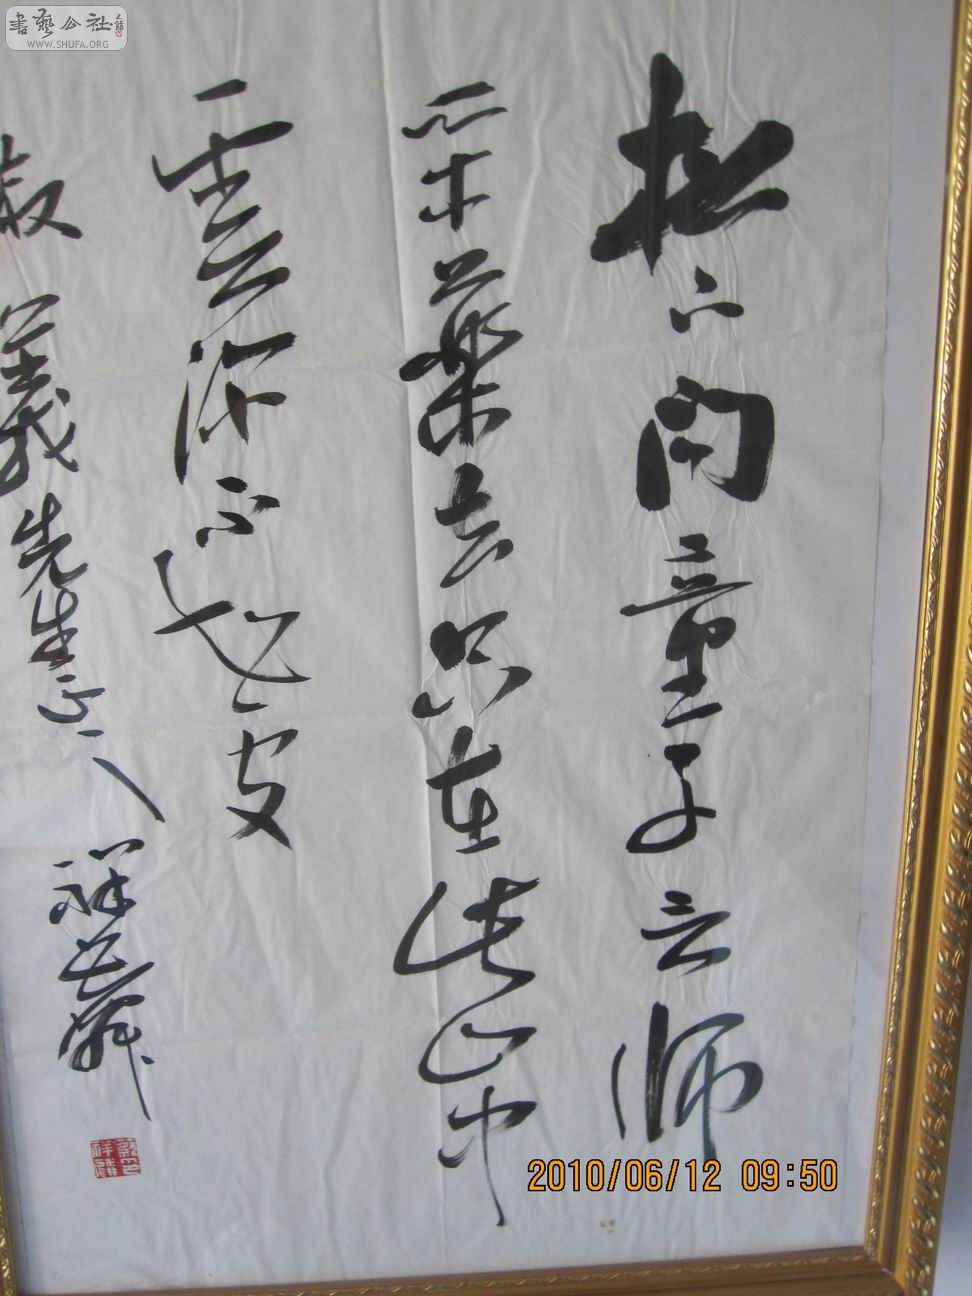 書藝公社
WWW.SHUFA.ORG
松下问童子言师
采藥去只在此山中
雲深不知处
義先生正之 祥
2010/06/12 09:50